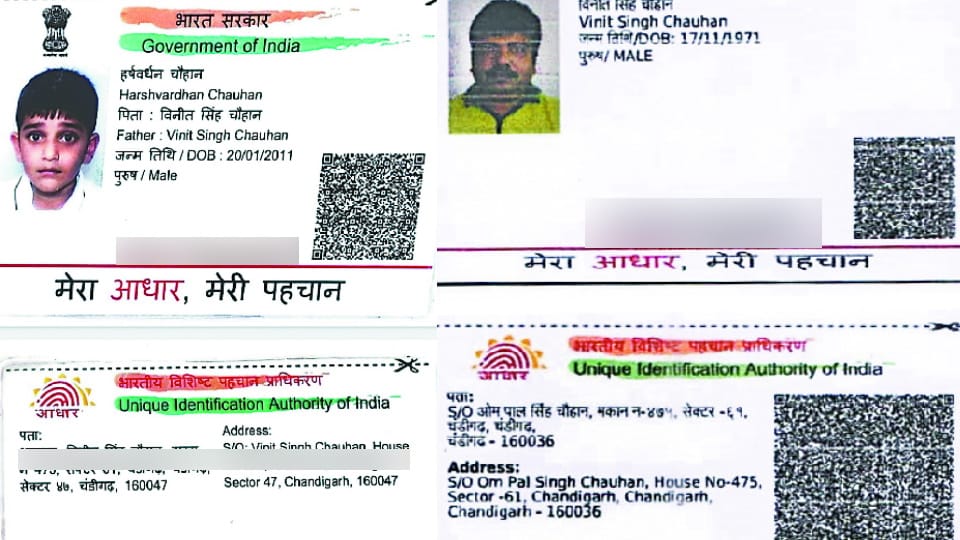 भारत सरकार
Government of India
हर्षवर्धन चौहान
Harshvardhan Chauhan
पिता : विनीत सिंह चौहान
Father : Vinit Singh Chauhan
जन्म तिथि / DOB : 20/01/2011
पुरुष / Male
मेरा आधार, मेरी पहचान
आधार
भारतीय विशिष्ट पहचान प्राधिकरण
Unique Identification Authority of India
पता:
सेक्टर ४७, चंडीगढ़, 160047
Address:
S/O: Vinit Singh Chauhan, House
Sector 47, Chandigarh, 160047
विनीत सिंह चौहान
Vinit Singh Chauhan
जन्म तिथि/DOB: 17/11/1971
पुरुष/ MALE
मेरा आधार, मेरी पहचान
आधार
भारतीय विशिष्ट पहचान प्राधिकरण
Unique Identification Authority of India
पता:
S/O ओम पाल सिंह चौहान, मकान न-४७५, सेक्टर -६१,
चंडीगढ़, चंडीगढ़,
चंडीगढ़ - 160036
Address:
S/O Om Pal Singh Chauhan, House No-475,
Sector -61, Chandigarh, Chandigarh,
Chandigarh - 160036